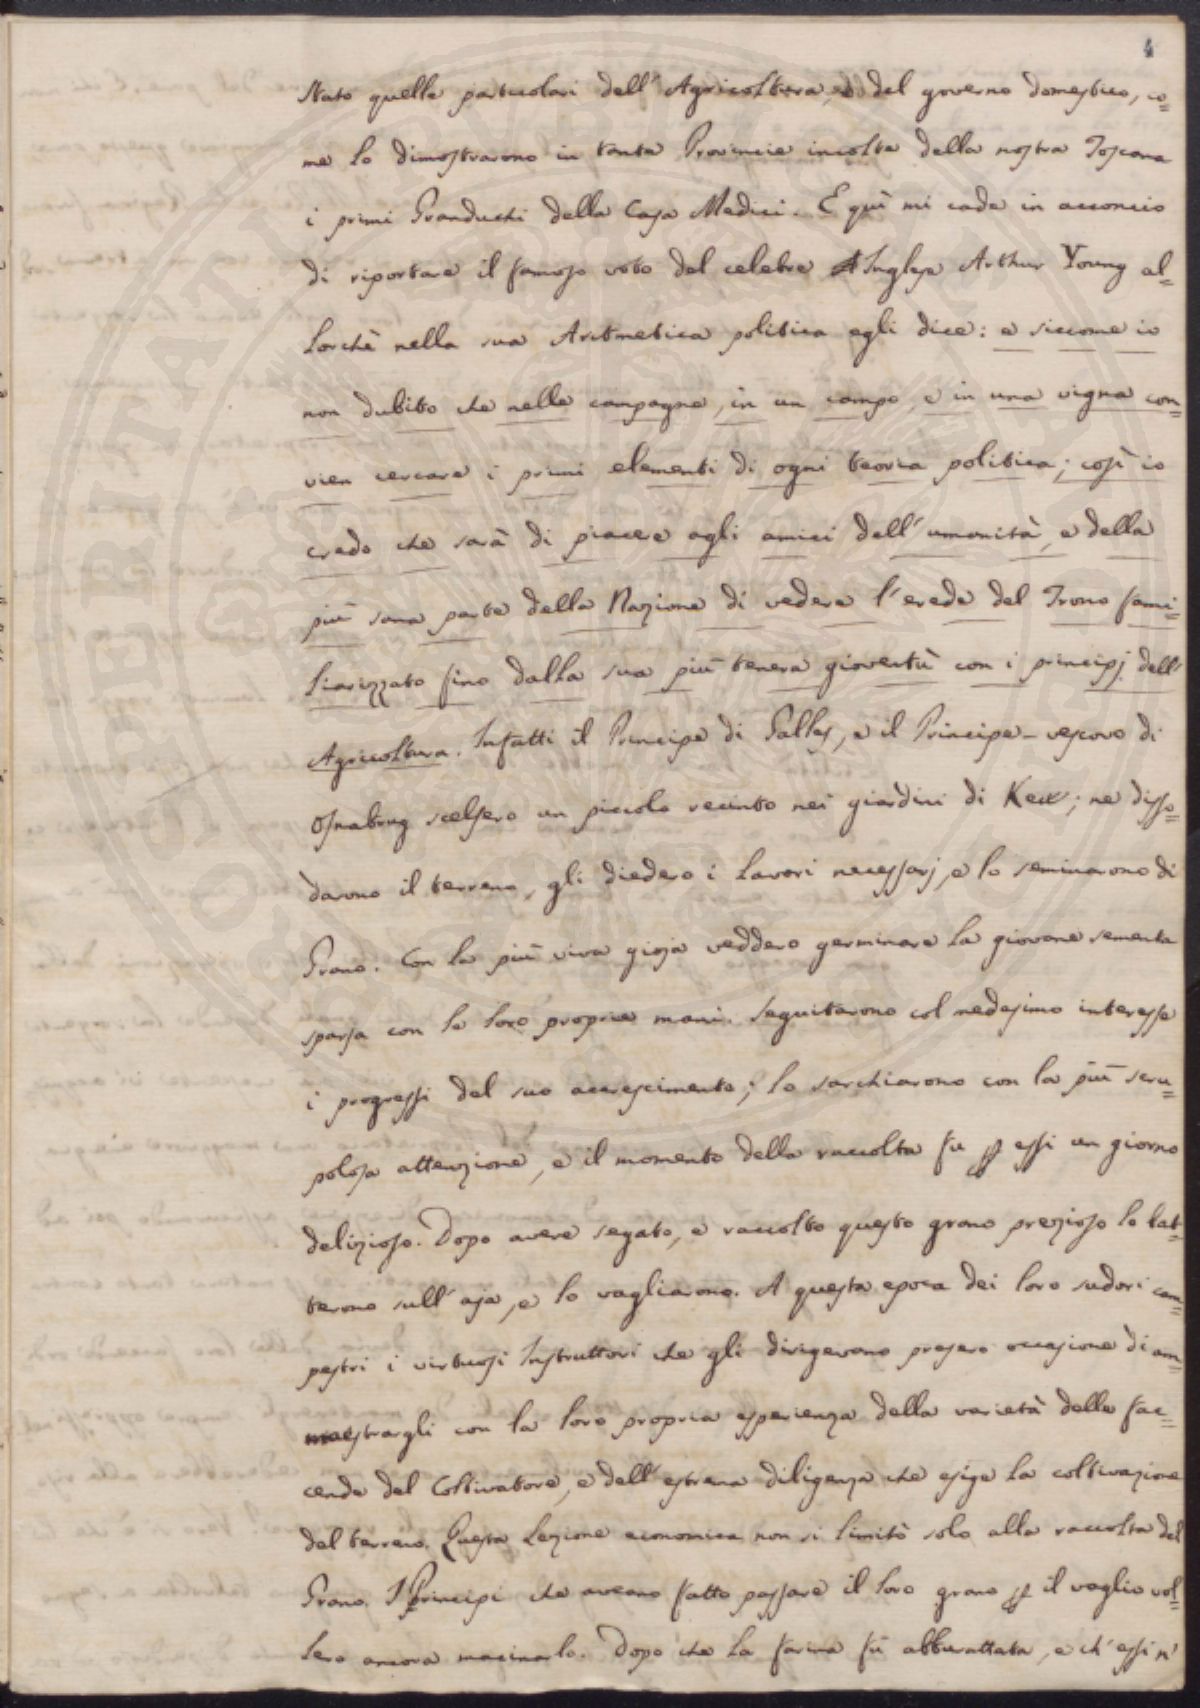 4
Stato quelle particolari dell'Agricoltura, e del governo domestico, co=
me lo dimostrarono in tante Provincie incolte della nostra Toscana
i primi Granduchi della Casa Medici. E quì mi cade in acconcio
di riportare il famoso voto del celebre Inglese Arthur Young al=
lorchè nella sua Aritmetica politica egli dice: e siccome io
non dubito che nelle campagne, in un campo, e in una vigna con=
vien cercare i primi elementi di ogni teoria politica; così io
credo che sarà di piacere agli amici dell'umanità, e della
più sana parte della Nazione di vedere l'erede del Trono fami=
liarizzato fino dalla sua più tenera gioventù con i principj dell'
Agricoltura. Infatti il Principe di Galles, e il Principe-vescovo di
Osnabrug scelsero un piccolo recinto nei giardini di Kew; ne disso=
darono il terreno, gli diedero i lavori necessarj, e lo seminarono di
Grano. Con la più viva gioja veddero germinare la giovane sementa
sparsa con le loro proprie mani. Seguitarono col medesimo interesse
i progressi del suo accrescimento; lo sarchiarono con la più scru=
polosa attenzione, e il momento della raccolta fu p essi un giorno
delizioso. Dopo avere segato, e raccolto questo grano prezioso lo bat=
terono sull'aja, e lo vagliarono. A questa epoca dei loro sudori cam=
pestri i virtuosi Instruttori che gli dirigevano presero occasione di am=
maestrargli con la loro propria esperienza della varietà delle fac=
cende del Coltivatore, e dell'estrema diligenza che esige la coltivazione
del terreno. Questa Lezione economica non si limitò solo alla raccolta del
Grano. I Principi che aveano fatto passare il loro grano p il vaglio vol=
lero ancora macinarlo. Dopo che la farina fù abburattata, e ch'essi n'